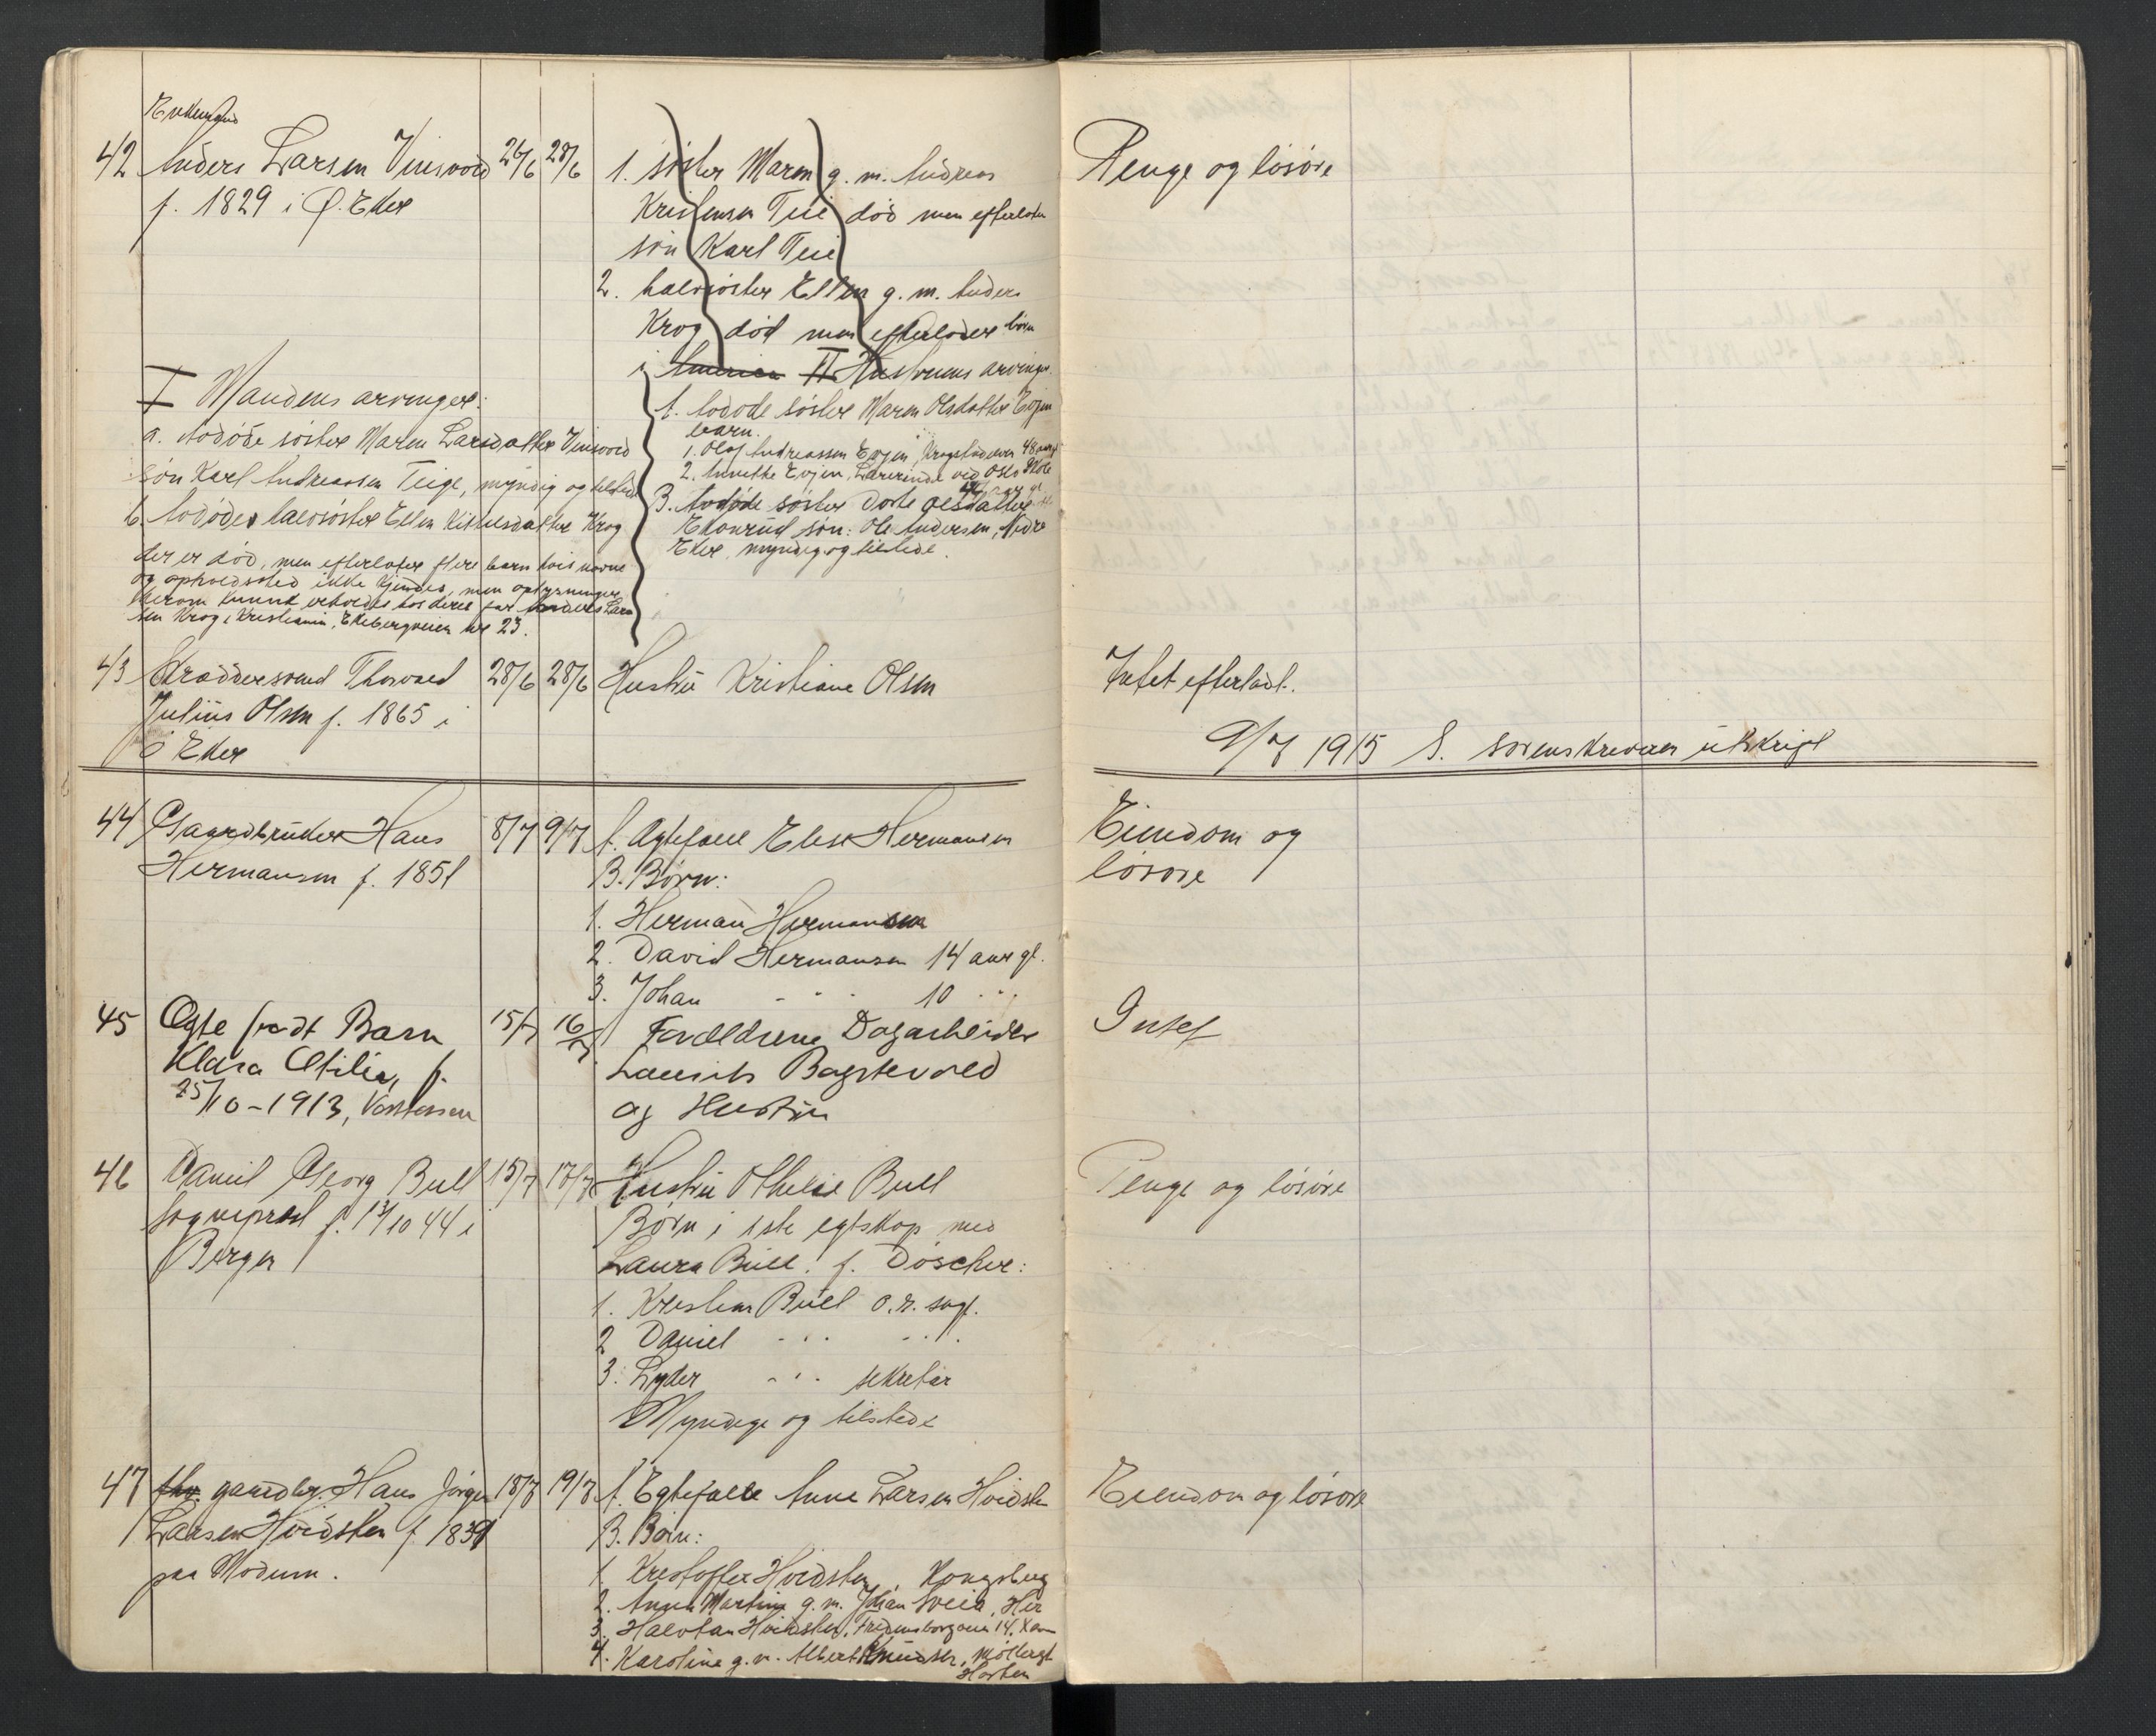 Enkemand
42 Anders Larsen Vinsvold 26/6 28/6
f. 1829 i Ø. Eker
1. søster Maren g. m. Andreas
Kristensen Teie død men efterlater
søn Karl Teie
2. halvsøster Ellen g. m. Anders
Krog død men efterlader börn
i Amerika II Hustruens arvinger.
Penge og løsøre
I Mandens arvinger:
a. Avdøde søster Maren Larsdatter Vinsvold
søn Karl Andreassen Teige, myndig og tilstede
b. Avdødes halvsøster Ellen Kittilsdatter Krog
der er død, men efterlater flere barn hvis navne
og opholdssted ikke kjendes, men oplysninger
herom kunne erholdes hos deres far Anders Lar
sen Krog, Kristiania, Ekebergveien nr 23.
1. Avdøde søster Maren Olsdatter Evjen
barn.
1. Olaf Andreassen Evjen, 48 aar gl
2. Annethe Evjen, Lærerinde ved Oslo Skole
3. Avdøde søster Dorte Olsdatter
søn: Ole Andersen, Nedre
Eker, myndig og tilstede.
43 Skræddersvend Thorvald 28/6 28/6 Hustru Kristiane Olsen
Julius Olsen f. 1865 i
Ø Eker
Intet efterladt.
9/7 1915 S. sorenskriveren utskrift
44 Gaardbruker Hans 8/7 9/7 A. Ægtefælle Elise Hermansen
Hermansen f. 1851
B. Børn:
1. Herman Hermansen
2. David Hermansen 14 aar gl.
3. Johan - - - 10 - -
Eiendom og
løsøre
45 Ægte født Barn 15/7 16/7 Forældrene Dagarbeider
Klara Otilie, f. Laurits Bagstevold
25/10-1913, Vestfossen og Hustru
Intet
46 Daniel Georg Bull 15/7 17/7 Hustru Othelie Bull
sogneprest f. 13/10 44 i
Bergen
Børn i 1ste egtskap med
Laura Bull f. Döscher:
1. Kristian Bull o.r. sagf.
2 Daniel - - - - - -
3. Lyder - - - sekretær
Myndige og tilstede
Penge og løsøre
47 fhv. gaardbr. Hans Jørgen 18/7 19/7 A. Egtefælle Anne Larsen Hvidsten
Larsen Hvidsten f. 1839
paa Modum.
B. Børn:
1. Kristoffer Hvidsten, Kongsberg
2. Anna Martine g. m. Johan Sveia, Her
3. Halvdan Hvidsten, Fredensborgveien 14, Xania
4. Karoline g. m. Albert Knudsen, Møllergt
Horten
Eiendom og løsøre